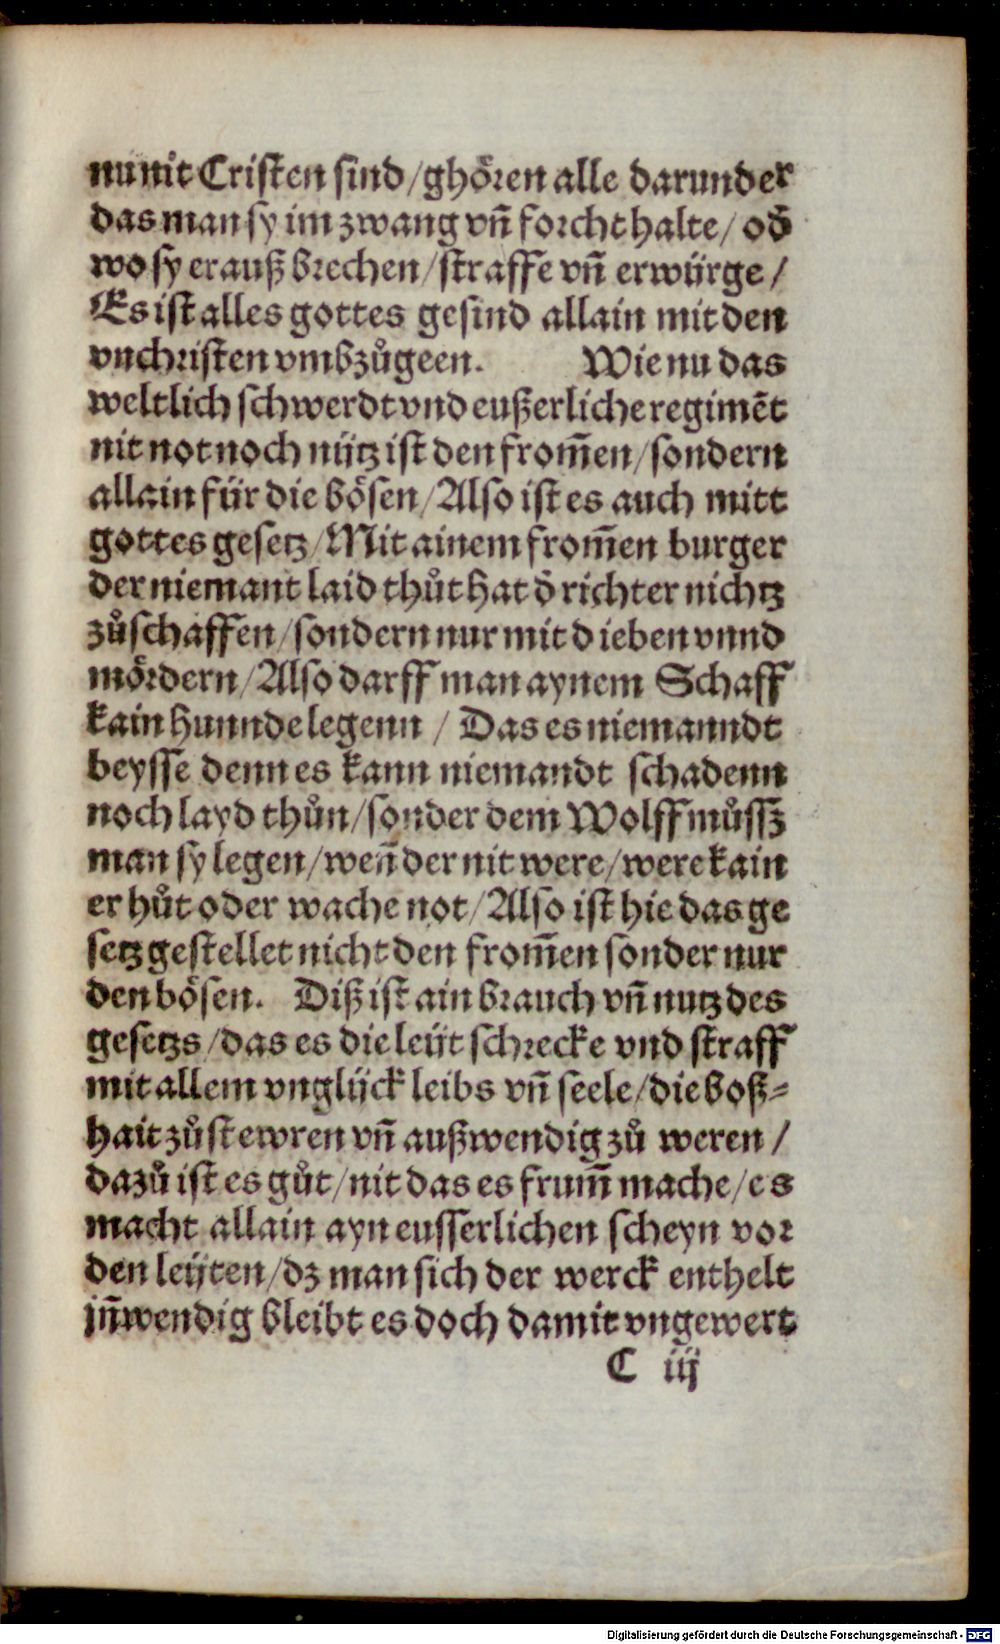 nu nit Cristen sind / ghören alle darunder
das man sy im zwang vn̄ forcht halte / od̄
wo sy erauß brechen / straffe vn̄ erwürge /
Es ist alles gottes gesind allain mit den
vnchristen vmbzůgeen. Wie nu das
weltlich schwerdt vnd eußerliche regimēt
nit not noch nütz ist den from̄en / sondern
allain für die bösen / Also ist es auch mitt
gottes gesetz / Mit ainem from̄en burger
der niemant laid thůt hat d̄ richter nichtz
zůschaffen / sondern nur mit dieben vnnd
mördern / Also darff man aynem Schaff
kain hunnde legenn / Das es niemanndt
beysse denn es kann niemandt schadenn
noch layd thůn / sonder dem Wolff můssz
man sy legen / wen̄ der nit were / were kain
er hůt oder wache not / Also ist hie das ge
setz gestellet nicht den from̄en sonder nur
den bösen. Diß ist ain brauch vn̄ nutz des
gesetzs / das es die leüt schrecke vnd straff
mit allem vnglück leibs vn̄ seele / die boß⸗
hait zůstewren vn̄ außwendig zů weren /
dazů ist es gůt / nit das es frum̄ mache / es
macht allain ayn eusserlichen scheyn vor
den leüten / dz man sich der werck enthelt
jn̄wendig bleibt es doch damit vngewert
C iij
Digitalisierung gefördert durch die Deutsche Forschungsgemeinschaft - DFG